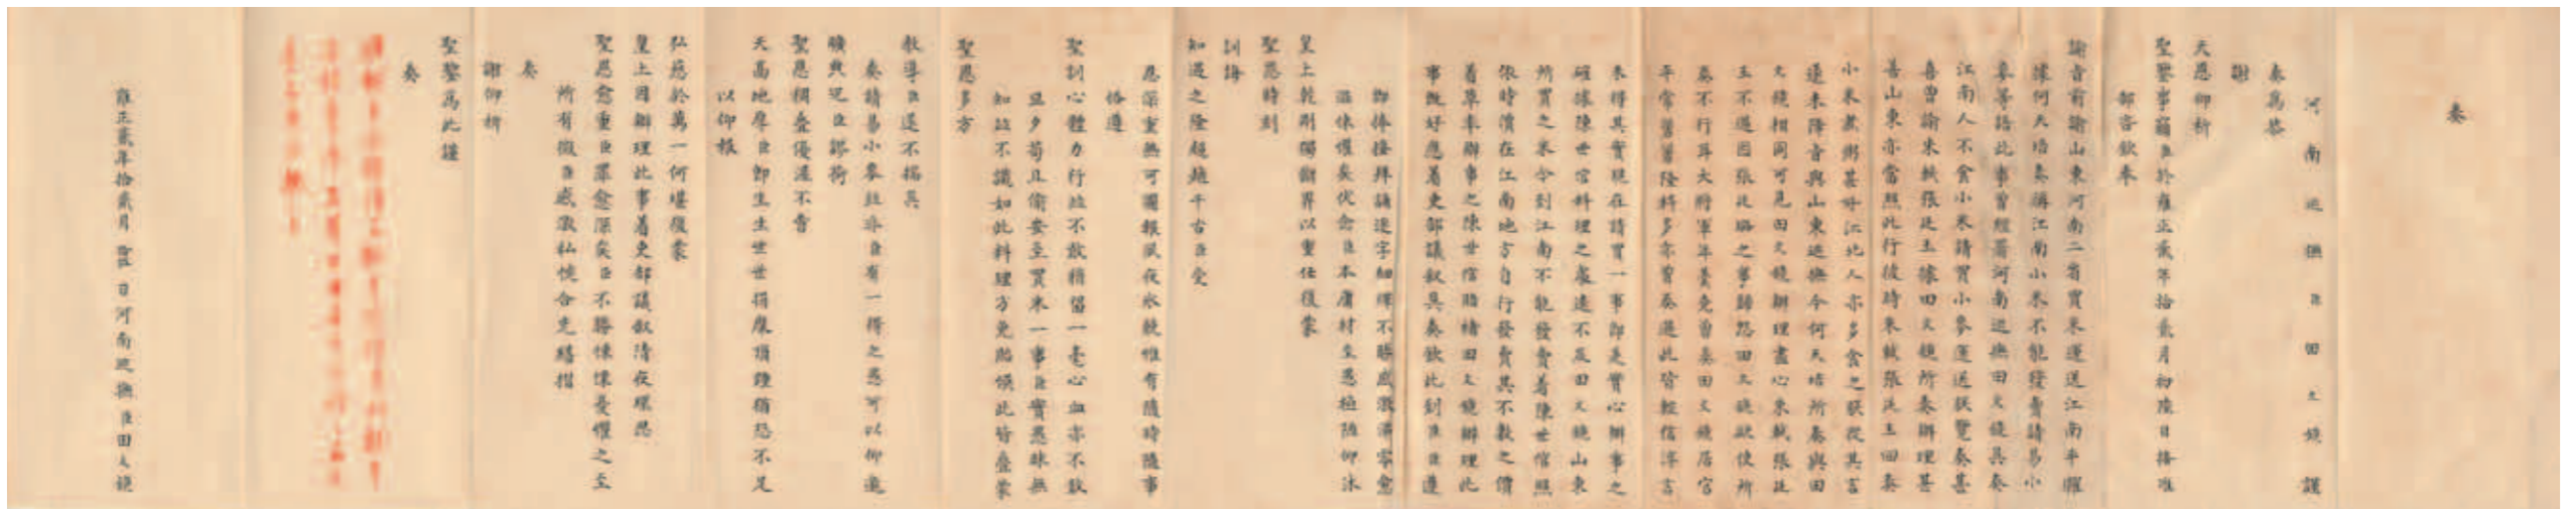 奏
河南巡撫臣田文鏡謹
奏為恭
謝
天恩仰祈
聖鑒事竊臣於雍正貳年拾貳月初陸日接准
部咨欽奉
諭旨前諭山東河南二省買米運送江南平糶
據何天培奏稱江南小米不能發賣請易小
麥等語此事曾經署河南巡撫田文鏡具奏
江南人不食小米請買小麥運送朕覽奏甚
喜曾諭朱軾張廷玉據田文鏡所奏辦理甚
善山東亦當照此行彼時朱軾張廷玉回奏
小米煮粥甚好江北人亦多食之朕從其言
遂未降旨與山東巡撫今何天培所奏與田
文鏡相同可見田文鏡辦理盡心朱軾張廷
玉不過因張廷璐之事歸怨田文鏡欲使所
奏不行耳大將軍年羹堯曾奏田文鏡居官
平常舅舅隆科多亦曾奏過此皆輕信浮言
未得其實現在請買一事即是實心辦事之
確據陳世倌料理之處遠不及田文鏡山東
所買之米今到江南不能發賣着陳世倌照
依時價在江南地方自行發賣其不敷之價
着草率辦事之陳世倌賠補田文鏡辦理此
事既好應着吏部議敘具奏欽此到臣臣遵
即捧接拜誦逐字細繹不勝感激涕零愈
滋悚懼矣伏念臣本庸材至愚極陋仰沐
皇上乾剛獨斷畀以重任復蒙
聖恩時刻
訓誨
知遇之隆超越千古臣受
恩深重無可圖報夙夜冰兢惟有隨時隨事
恪遵
聖訓心體力行並不敢稍留一毫心血亦不敢
旦夕苟且偷安至買米一事臣實愚昧無
知茲不識如此料理方免貽悞此皆疊蒙
聖恩多方
教導臣遂不揣具
奏請易小麥並非臣有一得之愚可以仰邀
曠典況臣謬荷
聖恩稠疊優渥不啻
天高地厚臣即生生世世捐糜頂踵猶恐不足
以仰報
弘慈於萬一何堪復蒙
皇上因辦理此事着吏部議敘清夜環思
聖恩愈重臣罪愈深矣臣不勝悚惶憂懼之至
所有微臣感激私悃合先繕摺
奏
謝仰祈
聖鑒為此謹
奏
雍正貳年拾貳月 日河南巡撫臣田文鏡